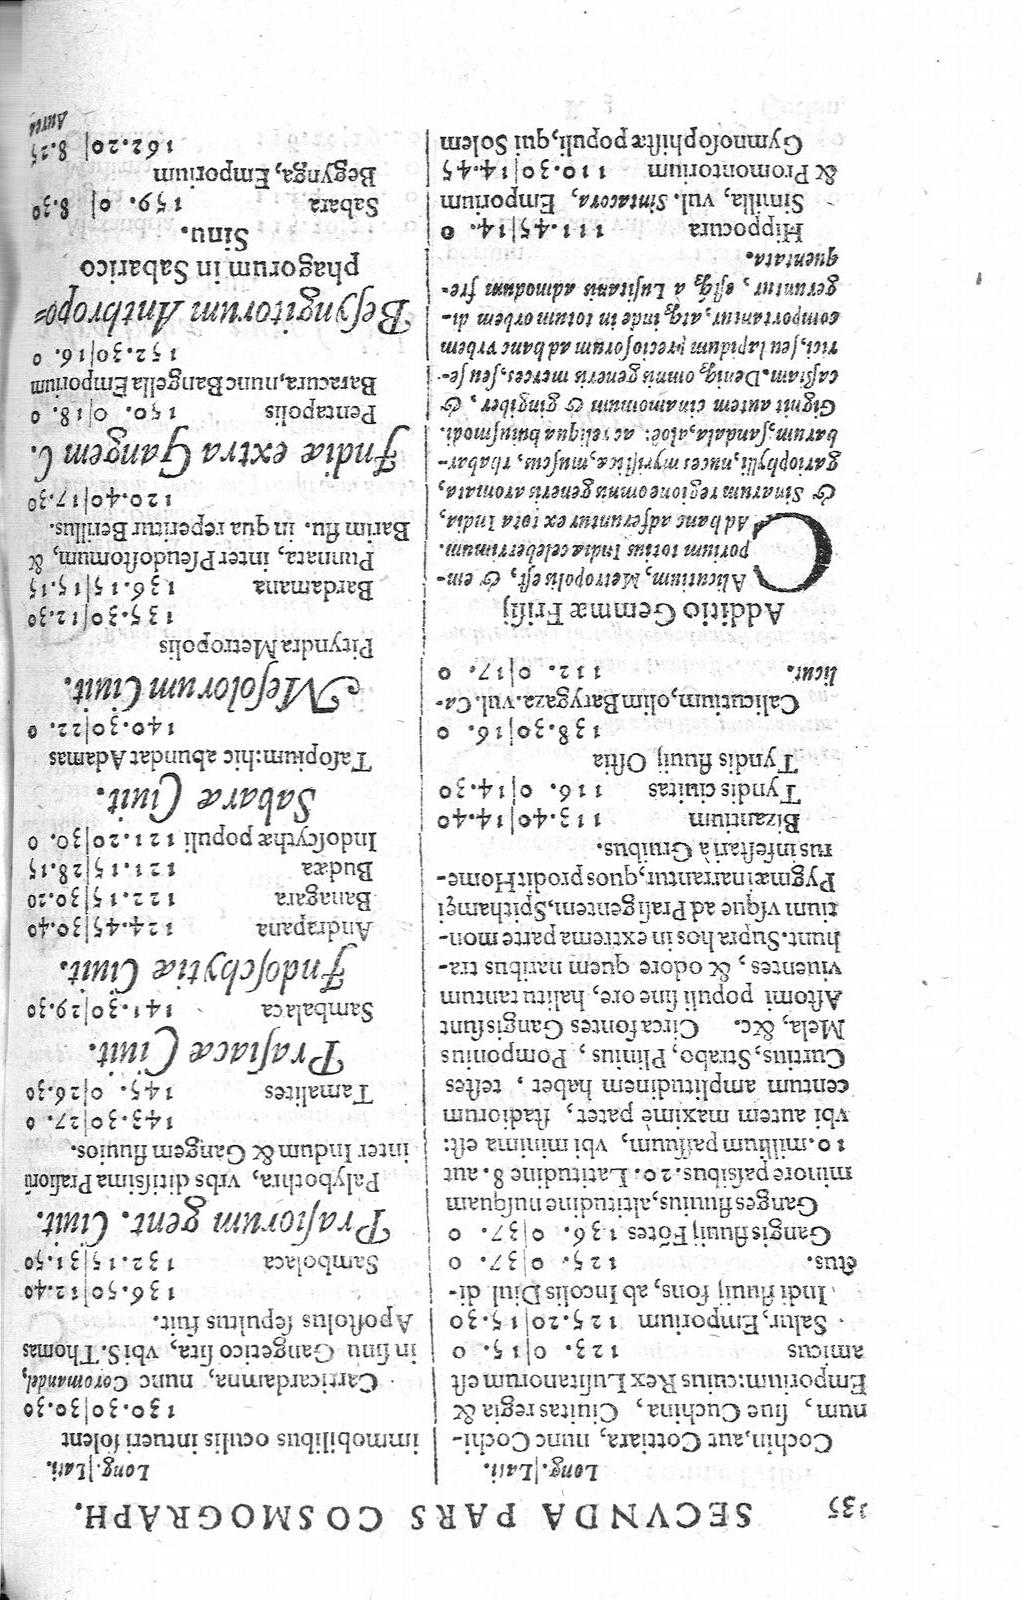 135 SECVNDA PARS COSMOGRAPH.
Long.|Lati.
Cochin, aut Cottiara, nunc Cochi-
num, siue Cuchina, Ciuitas regia &
Emporium: cuius Rex Lusitanorum est
amicus 123. 0|15. 0
Salur, Emporium 125.20|15.30
Indi fluuij fons, ab Incolis Diul di-
ctus. 125. 0|37. 0
Gangis fluuij Fōtes 136. 0|37. 0
Ganges fluuius, altitudine nusquam
minore passibus. 20. Latitudine 8. aut
10. millium passuum, vbi minima est:
vbi autem maximè patet, stadiorum
centum amplitudinem habet, testes
Curtius, Strabo, Plinius, Pomponius
Mela, &c. Circa fontes Gangis sunt
Astomi populi sine ore, halitu tantum
viuentes, & odore quem naribus tra-
hunt. Supra hos in extrema parte mon-
tium vsque ad Prasi gentem, Spithamęi
Pygmæi narrantur, quos prodit Home-
rus infestari à Gruibus.
Bizantium 113.40|14.40
Tyndis ciuitas 116. 0|14.30
Tyndis fluuij Ostia
138.30|16. 0
Calicutium, olim Barygaza. vul. Ca-
licut. 112. 0|17. 0
Additio Gemmæ Frisij
CAlicutium, Metropolis est, & em-
porium totius Indiæ celeberrimum.
Ad hanc adferuntur ex tota India,
& Sinarum regione omnis generis aromata,
gariophylli, nuces myristicæ, muscus, rhabar-
barum, sandala, aloë: ac reliqua huiusmodi.
Gignit autem cinamomum & gingiber, &
cassiam. Deniq; omnis generis merces, seu se-
rici, seu lapidum preciosorum ad hanc vrbem
comportantur, atq; inde in totum orbem di-
geruntur, estq; a Lusitanis admodum fre-
quentata.
Hippocura 111.45|14. 0
Similla, vul. Sintacora, Emporium
& Promontorium 110.30|14.45
Gymnosophistæ populi, qui Solem
Long.|Lati.
immobilibus oculis intueri solent
130.30|30.30
Carticardamna, nunc Coromandel,
in sinu Gangetico sita, vbi S. Thomas
Apostolus sepultus fuit.
136.50|12.40
Sambolaca 132.15|31.50
Prasiorum gent. Ciuit.
Palybothria, vrbs ditissima Prasiorū
inter Indum & Gangem fluuios.
143.30|27. 0
Tamalites 145. 0|26.30
Prasiacæ Ciuit.
Sambalaca 141.30|29.30
Indoschytiæ Ciuit.
Andrapana 124.45|30.40
Banagara 122.15|30.20
Budæa 121.15|28.15
Indoscythæ populi 121.20|30. 0
Sabaræ Ciuit.
Tasopium: hic abundat Adamas
140.30|22. 0
Mesolorum Ciuit.
Pityndra Metropolis
135.30|12.30
Bardamana 136.15|15.15
Punnata, inter Pseudostomum, &
Barim flu. in qua reperitur Berillus.
120.40|17.30
Indiæ extra Gangem C.
Pentapolis 150. 0|18. 0
Baracura, nunc Bangella Emporium
152.30|16. 0
Besyngitorum Anthropo=
phagorum in Sabarico
Sinu.
Sabara 159. 0|8.30
Begynga, Emporium
162.20|8.25
Aurea